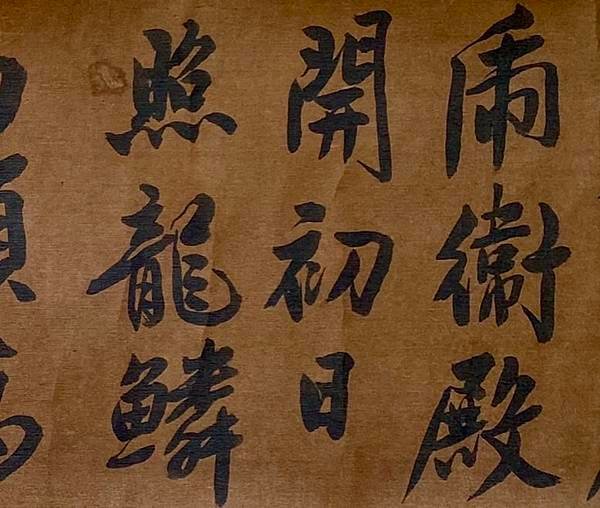 乕衛殿
開初日
照龍鱗